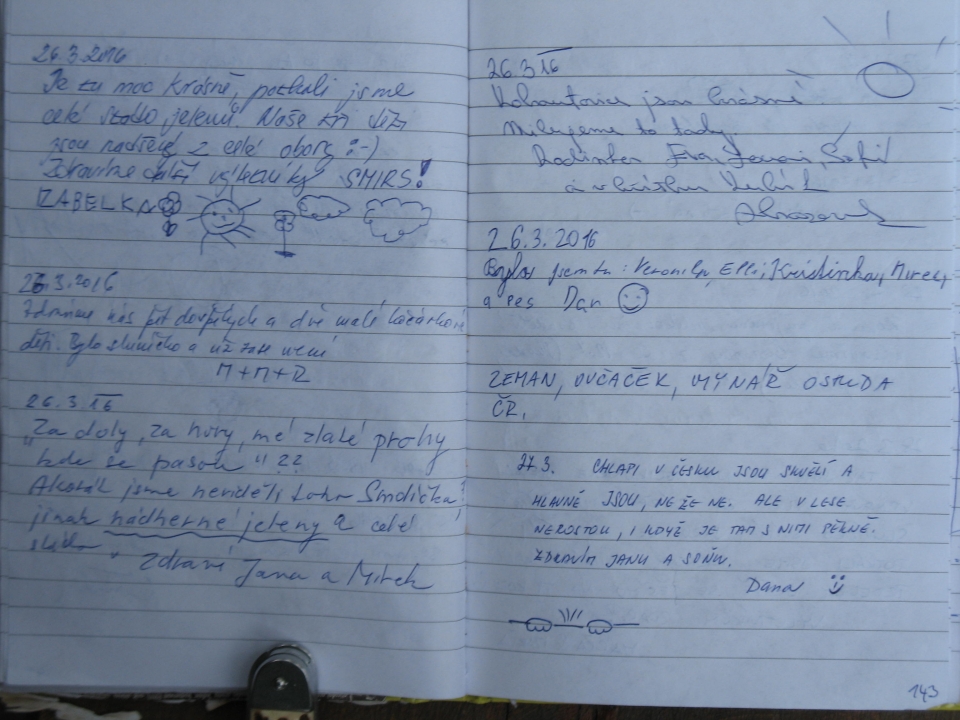 26.3.2016
Je tu moc krásně, potkali jsme
celé stádo jelenů. Naše tři děti
jsou nadšené z celé obory :-)
Zdravíme další výletníky SMIRS!
IZABELKA
26.3.2016
Zdravíme nás pět dospělých a dvě malé kočárkové
děti. Bylo sluníčko a už zase není
M+M+R
26.3.16
"Za doly, za hory, mé zlaté
kde se pasou" ??
Akorát jsme neviděli toho Smolíčka!
jinak nádherné jeleny a celé
stádo
Zdraví Jana a Mirek
26.3.16
jsou krásné
Milujeme to tady
a
26.3.2016
Byli jsme tu: Veronika, Elli, Kristinka, Mirek,
a pes Dan
ZEMAN, OVČÁČEK, MYNÁŘ OSTUDA
ČR.
27.3. CHLAPI V ČESKU JSOU SKVĚLÍ A
HLAVNĚ JSOU, NE ŽE NE. ALE V LESE
NEROSTOU, I KDYŽ JE TAM S NIMI PĚKNĚ.
ZDRAVÍM JANU A SOŇU.
Dana
143